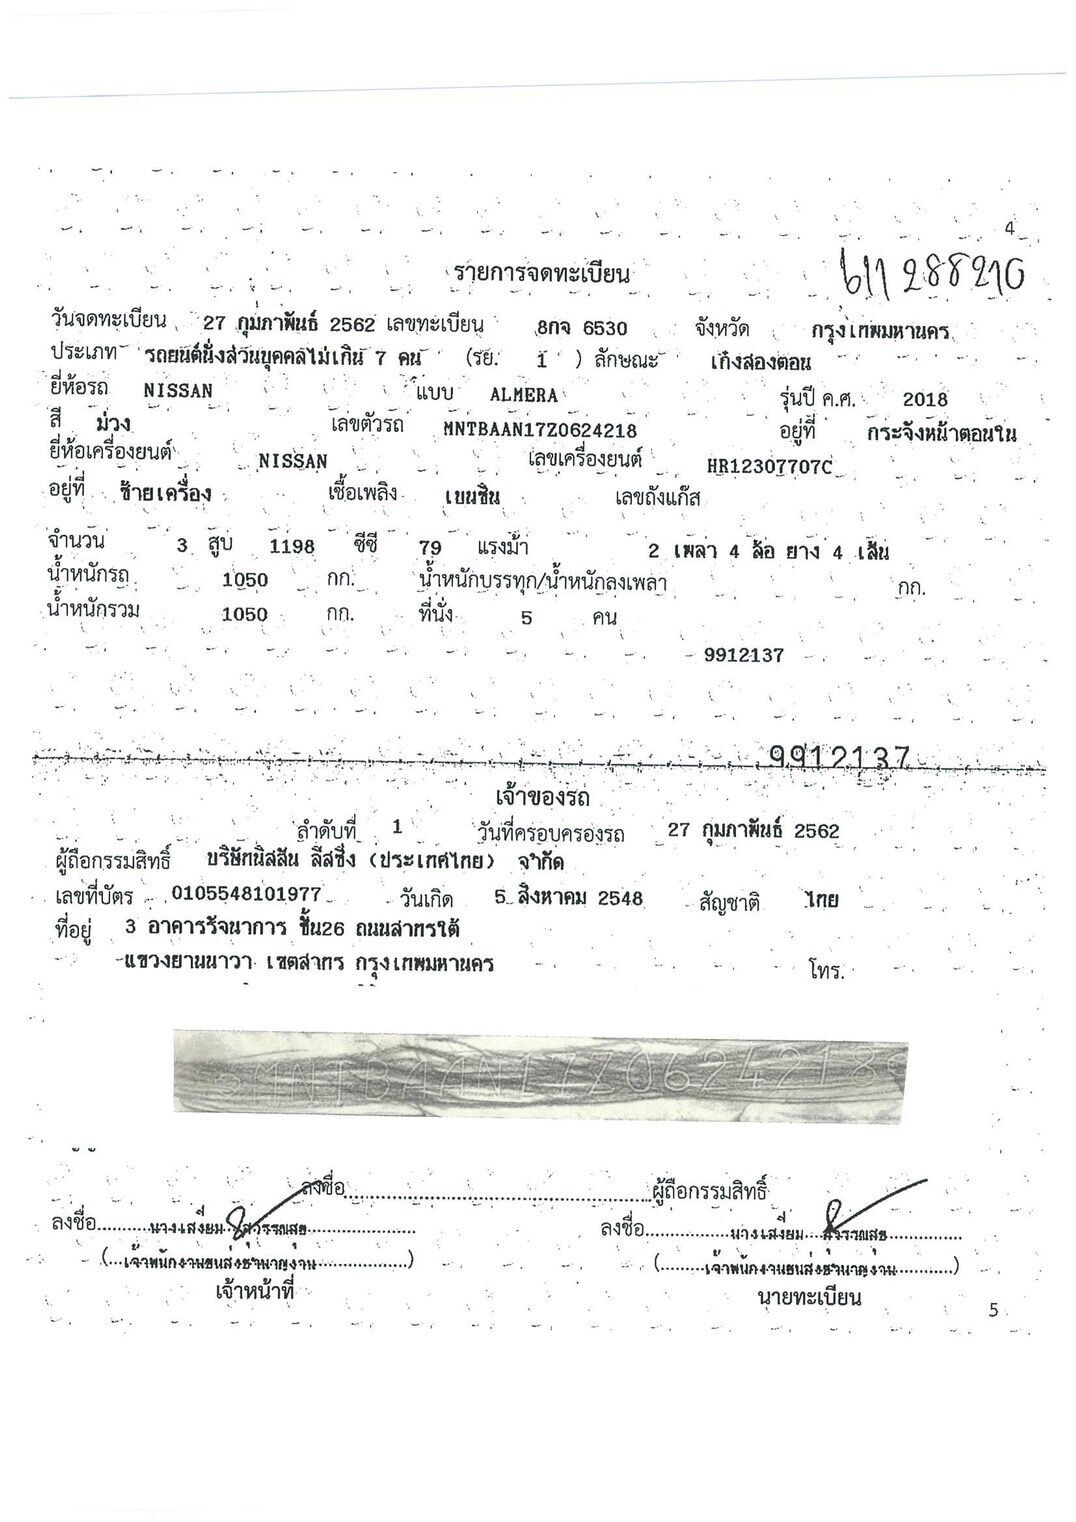 4
รายการจดทะเบียน
611288210
วันจดทะเบียน 27 กุมภาพันธ์ 2562 เลขทะเบียน 8กจ 6530 จังหวัด กรุงเทพมหานคร
ประเภท รถยนต์นั่งส่วนบุคคลไม่เกิน 7 คน (รย. 1 ) ลักษณะ เก๋งสองตอน
ยี่ห้อรถ NISSAN แบบ ALMERA รุ่นปี ค.ศ. 2018
สี ม่วง เลขตัวรถ MNTBAAN17Z0624218 อยู่ที่ กระจังหน้าตอนใน
ยี่ห้อเครื่องยนต์ NISSAN เลขเครื่องยนต์ HR12307707C
อยู่ที่ ซ้ายเครื่อง เชื้อเพลิง เบนซิน เลขถังแก๊ส
จำนวน 3 สูบ 1198 ซีซี 79 แรงม้า 2 เพลา 4 ล้อ ยาง 4 เส้น
น้ำหนักรถ 1050 กก. น้ำหนักบรรทุก/น้ำหนักลงเพลา กก.
น้ำหนักรวม 1050 กก. ที่นั่ง 5 คน
9912137
9912137
เจ้าของรถ
ลำดับที่ 1 วันที่ครอบครองรถ 27 กุมภาพันธ์ 2562
ผู้ถือกรรมสิทธิ์ บริษัทนิสสัน ลีสซิ่ง (ประเทศไทย) จำกัด
เลขที่บัตร 0105548101977 วันเกิด 5 สิงหาคม 2548 สัญชาติ ไทย
ที่อยู่ 3 อาคารรัจนาการ ชั้น26 ถนนสาทรใต้
แขวงยานนาวา เขตสาทร กรุงเทพมหานคร โทร.
MNTBAAN17Z0624218
ลงชื่อ ผู้ถือกรรมสิทธิ์
ลงชื่อ นางเสงี่ยม สุวรรณสุข ลงชื่อ นางเสงี่ยม สุวรรณสุข
(เจ้าพนักงานขนส่งชำนาญงาน) (เจ้าพนักงานขนส่งชำนาญงาน)
เจ้าหน้าที่ นายทะเบียน
5